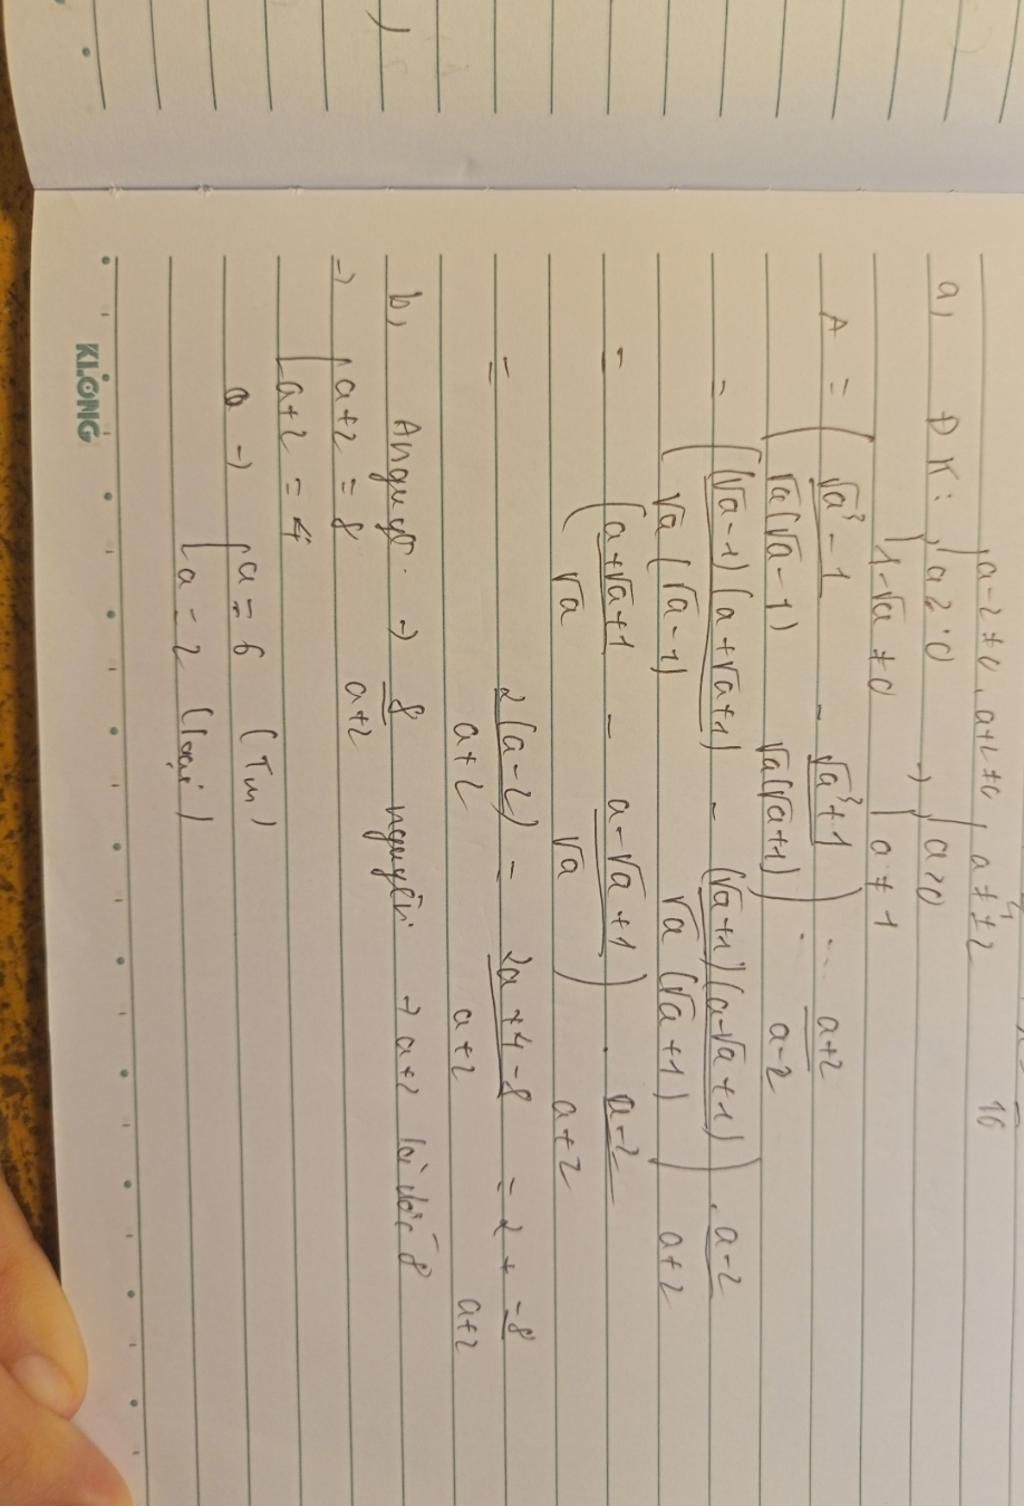 16
a-2≠0, a+2≠0, a≠±2
a, ĐK: { a≥0 → { a>0
1-√a ≠0 { a≠1
A = ( (√a³-1)/(√a(√a-1)) - (√a³+1)/(√a(√a+1)) ) : (a+2)/(a-2)
= ( ((√a-1)(a+√a+1))/(√a(√a-1)) - ((√a+1)(a-√a+1))/(√a(√a+1)) ) . (a-2)/(a+2)
= ( (a+√a+1)/√a - (a-√a+1)/√a ) . (a-2)/(a+2)
= 2(a-2)/(a+2) = (2a+4-8)/(a+2) = 2 + -8/(a+2)
b, A nguyên → 8/(a+2) nguyên → a+2 là ước 8
→ [ a+2 = 8
[ a+2 = 4
→ [ a = 6 (Tm)
[ a = 2 (loại)
KLONG